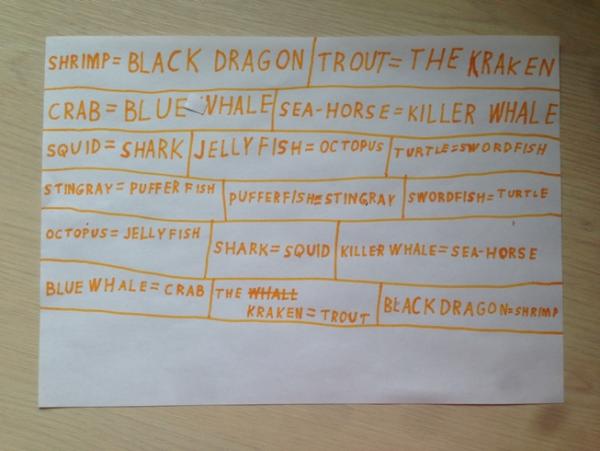 SHRIMP= BLACK DRAGON
TROUT= THE KRAKEN
CRAB= BLUE WHALE
SEA-HORSE=KILLER WHALE
SQUID= SHARK
JELLYFISH= OCTOPUS
TURTLE=SWORDFISH
STINGRAY= PUFFER FISH
PUFFERFISH=STINGRAY
SWORDFISH= TURTLE
OCTOPUS= JELLYFISH
SHARK=SQUID
KILLER WHALE= SEA-HORSE
BLUE WHALE= CRAB
THE WHALL
KRAKEN=TROUT
BLACK DRAGON=SHRIMP